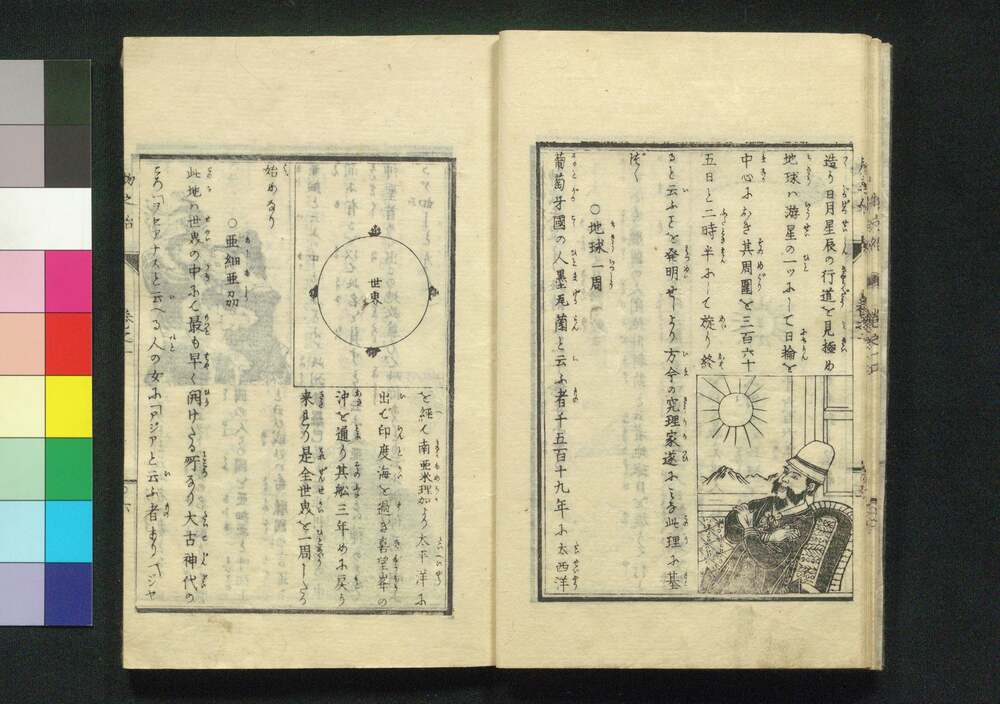 造り日月星辰の行道を見極め
地球ハ游星の一ツにして日輪を
中心におき其周圍を三百六十
五日と二時半にして旋り終
ると云ふことを発明せしより方今の究理家遂に皆此理に基
づく
○地球一周
葡萄牙國の人墨瓦蘭と云ふ者千五百十九年に太西洋
を経て南亜米理加より太平洋に
出て印度海を過ぎ喜望峯の
沖を通り其舩三年めに戻り
来れり是全世界を一周したる
始めなり
世東
○亜細亜州
此地ハ世界の中にて最も早く開けたる所なり大古神代の
ころヲセアナスと云へる人の女にアジアと云ふ者ありペジヤ